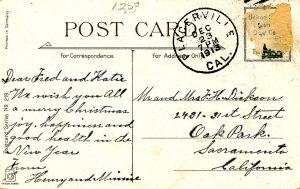 1.25
POST CARD
PLACERVILLE
DEC
23
7 PM
1913
CAL.
For Correspondence.
For Address Only
Dear Fred and Hatie
We wish you All
a merry Christmas
joy, happiness and
good health in the
New Year
From
Henry and Minnie
Mr and Mrs F. H. Dickson
2431-31st Street
Oak Park
Sacramento
California